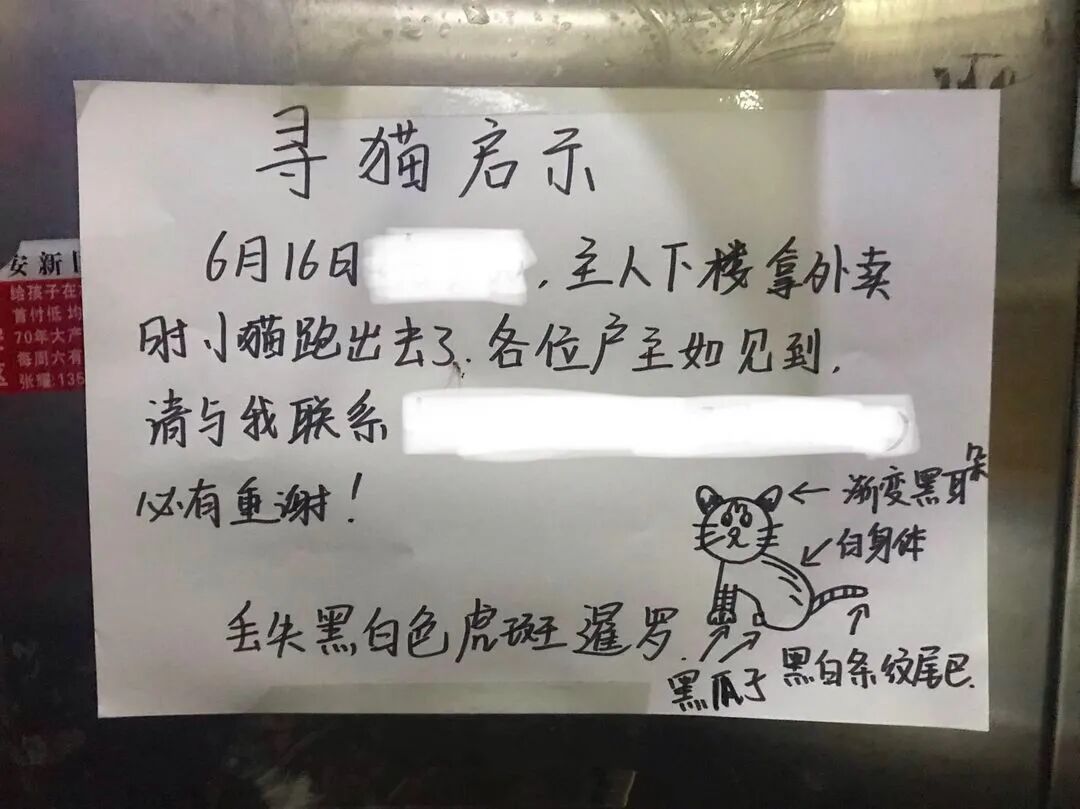 寻猫启示
6月16日 ,主人下楼拿外卖
时小猫跑出去了.各位户主如见到,
请与我联系
必有重谢!
渐变黑耳朵
白身体
丢失黑白色虎斑暹罗.
黑爪子
黑白条纹尾巴.
安新
给孩子在
首付低 均
70年大产
每周六有
张耀:135